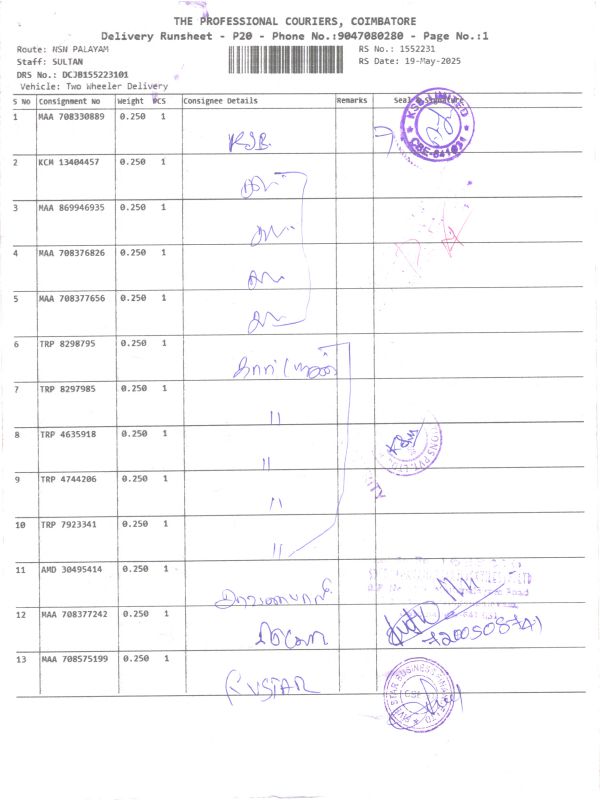 THE PROFESSIONAL COURIERS, COIMBATORE
Delivery Runsheet - P20 - Phone No.:9047080280 - Page No.:1
Route: NSN PALAYAM
RS No.: 1552231
Staff: SULTAN
RS Date: 19-May-2025
DRS No.: DCJB155223101
Vehicle: Two Wheeler Delivery
S No Consignment No Weight PCS Consignee Details Remarks Seal & Signature
1 MAA 708330889 0.250 1 KSB KSB LIMITED CBE-641031
2 KCM 13404457 0.250 1
3 MAA 869946935 0.250 1
4 MAA 708376826 0.250 1
5 MAA 708377656 0.250 1
6 TRP 8298795 0.250 1
7 TRP 8297985 0.250 1 "
8 TRP 4635918 0.250 1 "
9 TRP 4744206 0.250 1 "
10 TRP 7923341 0.250 1 "
11 AMD 30495414 0.250 1
12 MAA 708377242 0.250 1 7200508741
13 MAA 708575199 0.250 1 FIVESTAR FIVE STAR BUSINESS FINANCE LTD